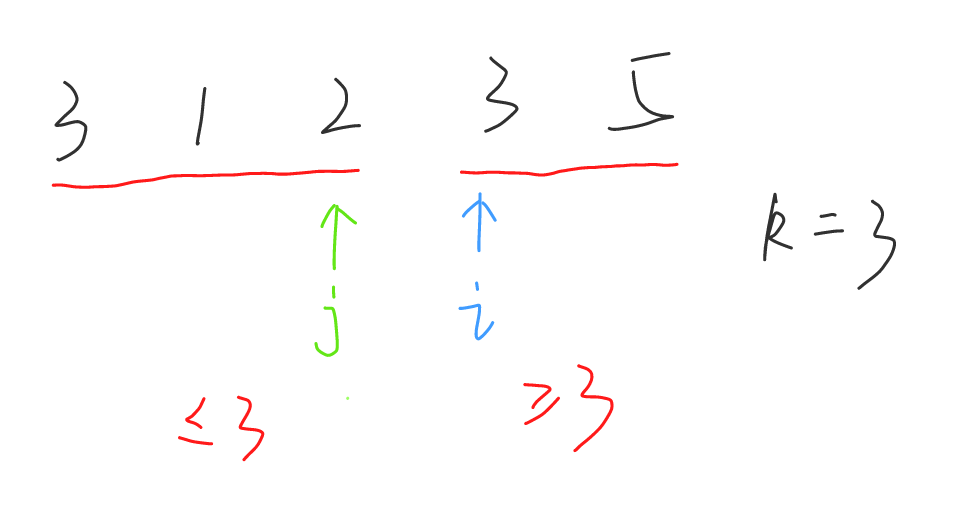 3 1 2 3 5
k = 3
j i
≤3 ≥3